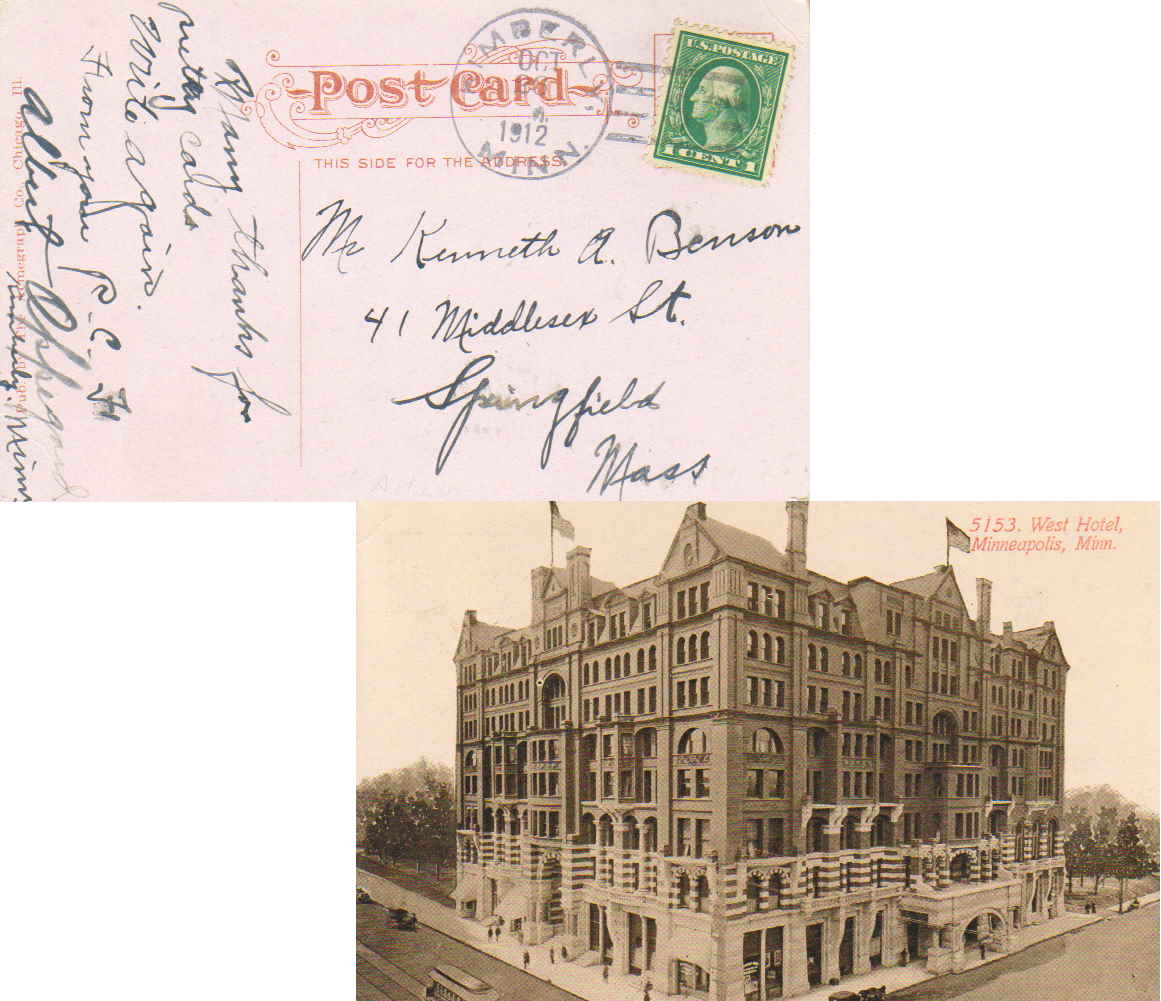 Post Card
THIS SIDE FOR THE ADDRESS.
KIMBERLY,
OCT
1912
MINN.
U.S. POSTAGE
1 CENT 1
Many thanks for
pretty cards
Write again.
From your P.C. Fr
Albert Oppegard
Kimberly, Minn
Mr Kenneth A. Benson
41 Middlesex St.
Springfield
Mass
Co., Chicago, Ill.
5153. West Hotel,
Minneapolis, Minn.